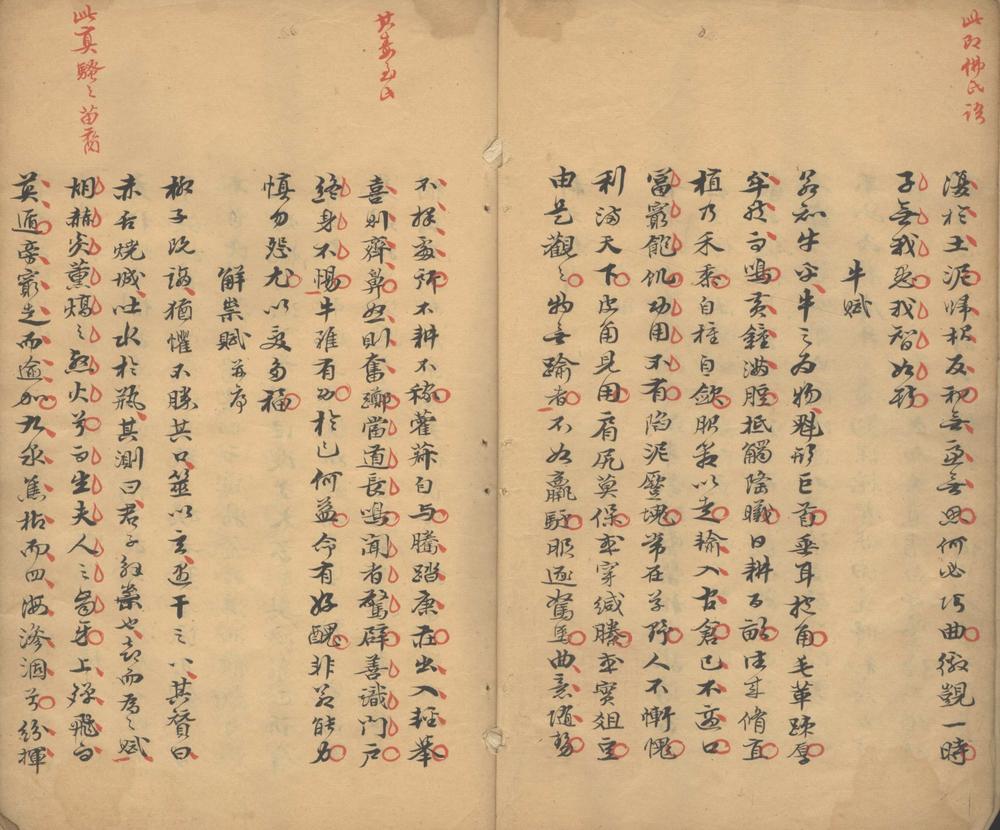 此即佛氏語
復於土泥歸根反初無慮無思何必巧曲徼覬一時
子無我愚我智如斯
牛賦
若知牛乎牛之為物魁形巨首垂耳抱角毛革疎厚
牟然而鳴黃鐘滿脰抵觸隆曦日耕百畝往來脩直
植乃禾黍自種自斂服箱以走輸入官倉己不適口
富窮飽飢功用不有陷泥蹷塊常在草野人不慚愧
利滿天下皮角見用肩尻莫保或穿緘縢或實俎豆
由是觀之物無踰者不如羸驢服逐駑馬曲意隨勢
不擇處所不耕不稼藿菽自与騰踏康莊出入輕舉
喜則齊鼻怒則奮躑當道長鳴聞者驚辟善識門戶
終身不惕牛雖有功於己何益命有好醜非若能力
慎勿怨尤以受多福
解祟賦 并序
柳子既謫猶懼不勝其口筮以玄遇干之八其贊曰
赤舌燒城吐水於瓶其測曰君子解祟也喜而為之賦
胡赫炎薰熇之烈火兮而生夫人之齒牙上殫飛而
莫遁旁窮走而逾加九泉焦枯而四海滲涸兮紛揮
此真騷之苗裔